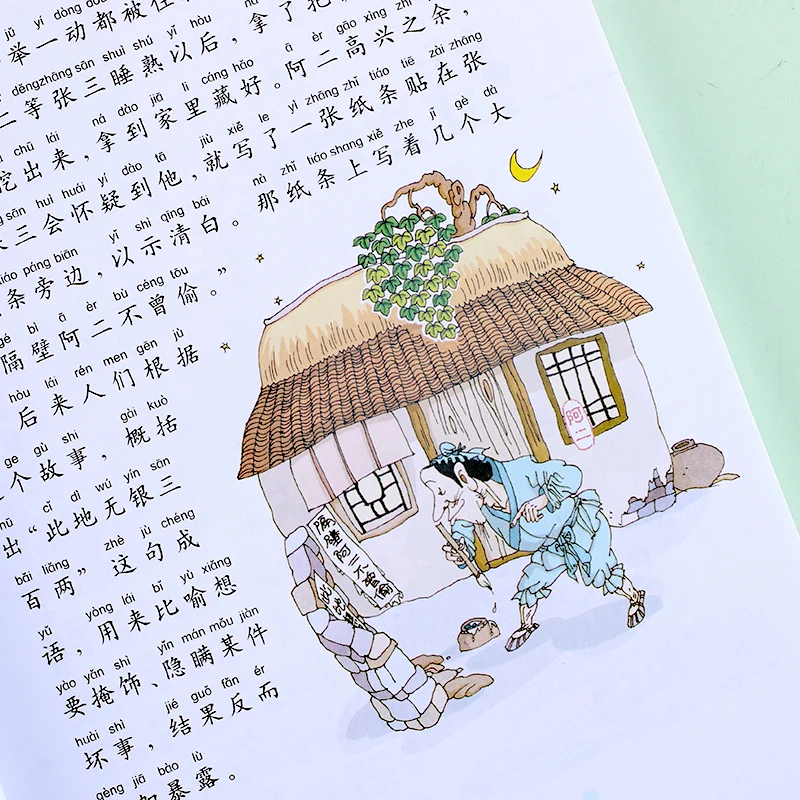 jǔ yi dòng dōu
举一动都被住
děng zhāng sān shuì shú yǐ hòu, ná le
二等张三睡熟以后，拿了把
chū lái ná dào jiā li cáng hǎo ā èr gāo xìng zhī yú
挖出来，拿到家里藏好。阿二高兴之余，
sān huì huái yí dào tā jiù xiě le yì zhāng zhǐ tiáo tiē zài zhāng
三会怀疑到他，就写了一张纸条贴在张
páng biān yǐ shì qīng bái nà zhǐ tiáo shang xiě zhe jǐ gè dà
条旁边，以示清白。那纸条上写着几个大
gé bì ā èr bù céng tōu
隔壁阿二不曾偷。”
hòu lái rén men gēn jù
后来人们根据
ge gù shi gài kuò
个故事，概括
cǐ dì wú yín sān
出“此地无银三
bǎi liǎng zhè jù chéng
百两”这句成
yǔ yòng lái bǐ yù xiǎng
语，用来比喻想
yào yǎn shì yǐn mán mǒu jiàn
要掩饰、隐瞒某件
huài shì jié guǒ fǎn ér
坏事，结果反而
gèng jiā bào lù
加暴露。
阿二
隔壁阿二不曾偷